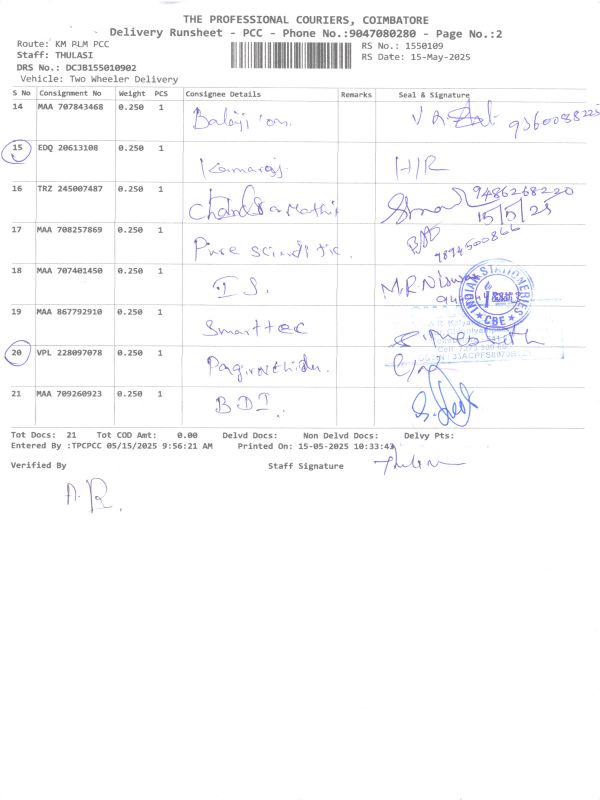 THE PROFESSIONAL COURIERS, COIMBATORE
Delivery Runsheet - PCC - Phone No.:9047080280 - Page No.:2
Route: KM RLM PCC
RS No.: 1550109
Staff: THULASI
RS Date: 15-May-2025
DRS No.: DCJB155010902
Vehicle: Two Wheeler Delivery
S No Consignment No Weight PCS Consignee Details Remarks Seal & Signature
14 MAA 707843468 0.250 1
15 EDQ 20613108 0.250 1 Kamaraj H/R
16 TRZ 245007487 0.250 1 9486268220
15/5/25
17 MAA 708257869 0.250 1 Pure scindific. 7874500866
18 MAA 707401450 0.250 1 I S. M.R.N
INDIAN STATIONERIES
CBE
19 MAA 867792910 0.250 1 Smarttec
20 VPL 228097078 0.250 1
21 MAA 709260923 0.250 1 BDI.
Tot Docs: 21 Tot COD Amt: 0.00 Delvd Docs: Non Delvd Docs: Delvy Pts:
Entered By :TPCPCC 05/15/2025 9:56:21 AM Printed On: 15-05-2025 10:33:43
Verified By Staff Signature
A.R.